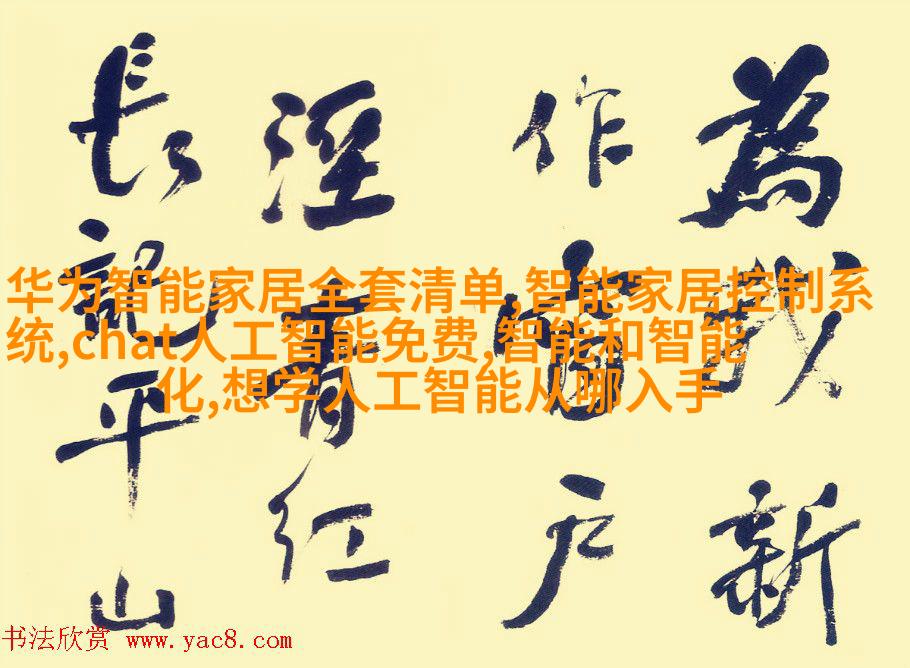 為我新
作窗户
溼青红
長記平山
华为智能家居全套清单,智能家居控制系
统,chat人工智能免费,智能和智能
化,想学人工智能从哪入手
书法欣赏 www.yac8.com